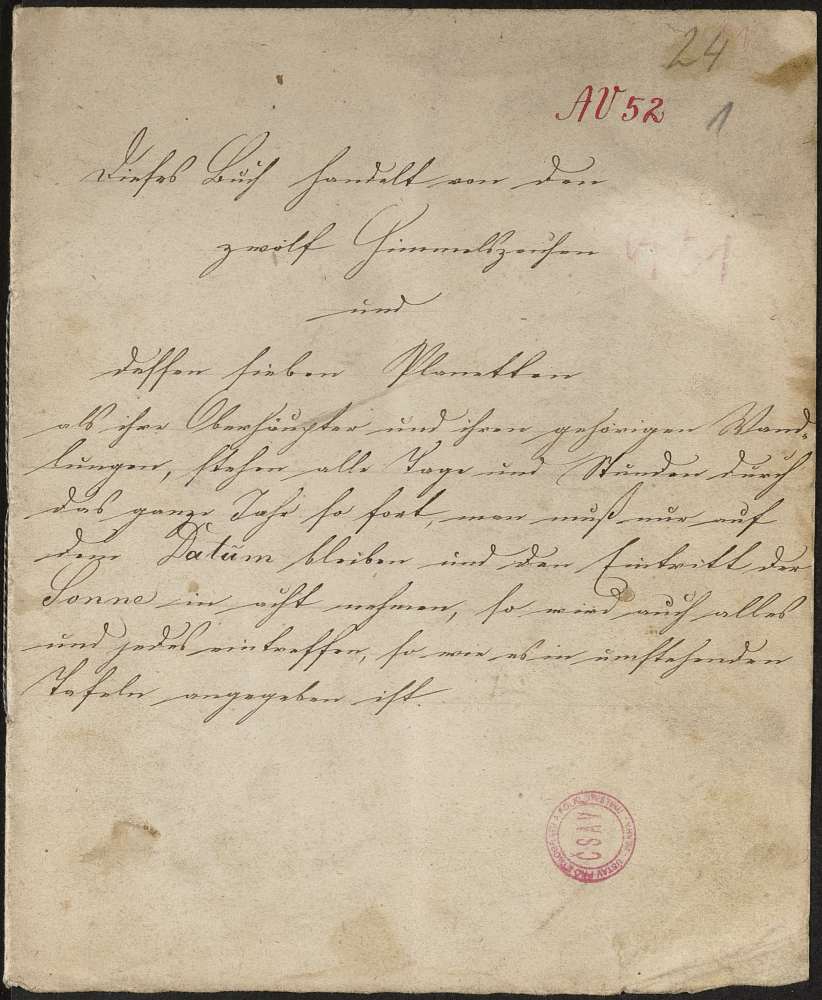 24
AV 52
1
Dieses Buch handelt von den
zwölf Himmelszeichen
und
dessen sieben Planetten
als ihre Oberhäupter und ihren gehörigen Wand-
lungen, stehen alle Tage und Stunden durch
das ganze Jahr so fort, man muß nur auf
dem Datum bleiben und den Eintritt der
Sonne in acht nehmen, so wird auch alles
und jedes eintreffen, so wie es in umstehenden
Tafeln angegeben ist.
ČSAV
ÚSTAV PRO ETNOGRAFII A FOLKLORISTIKU